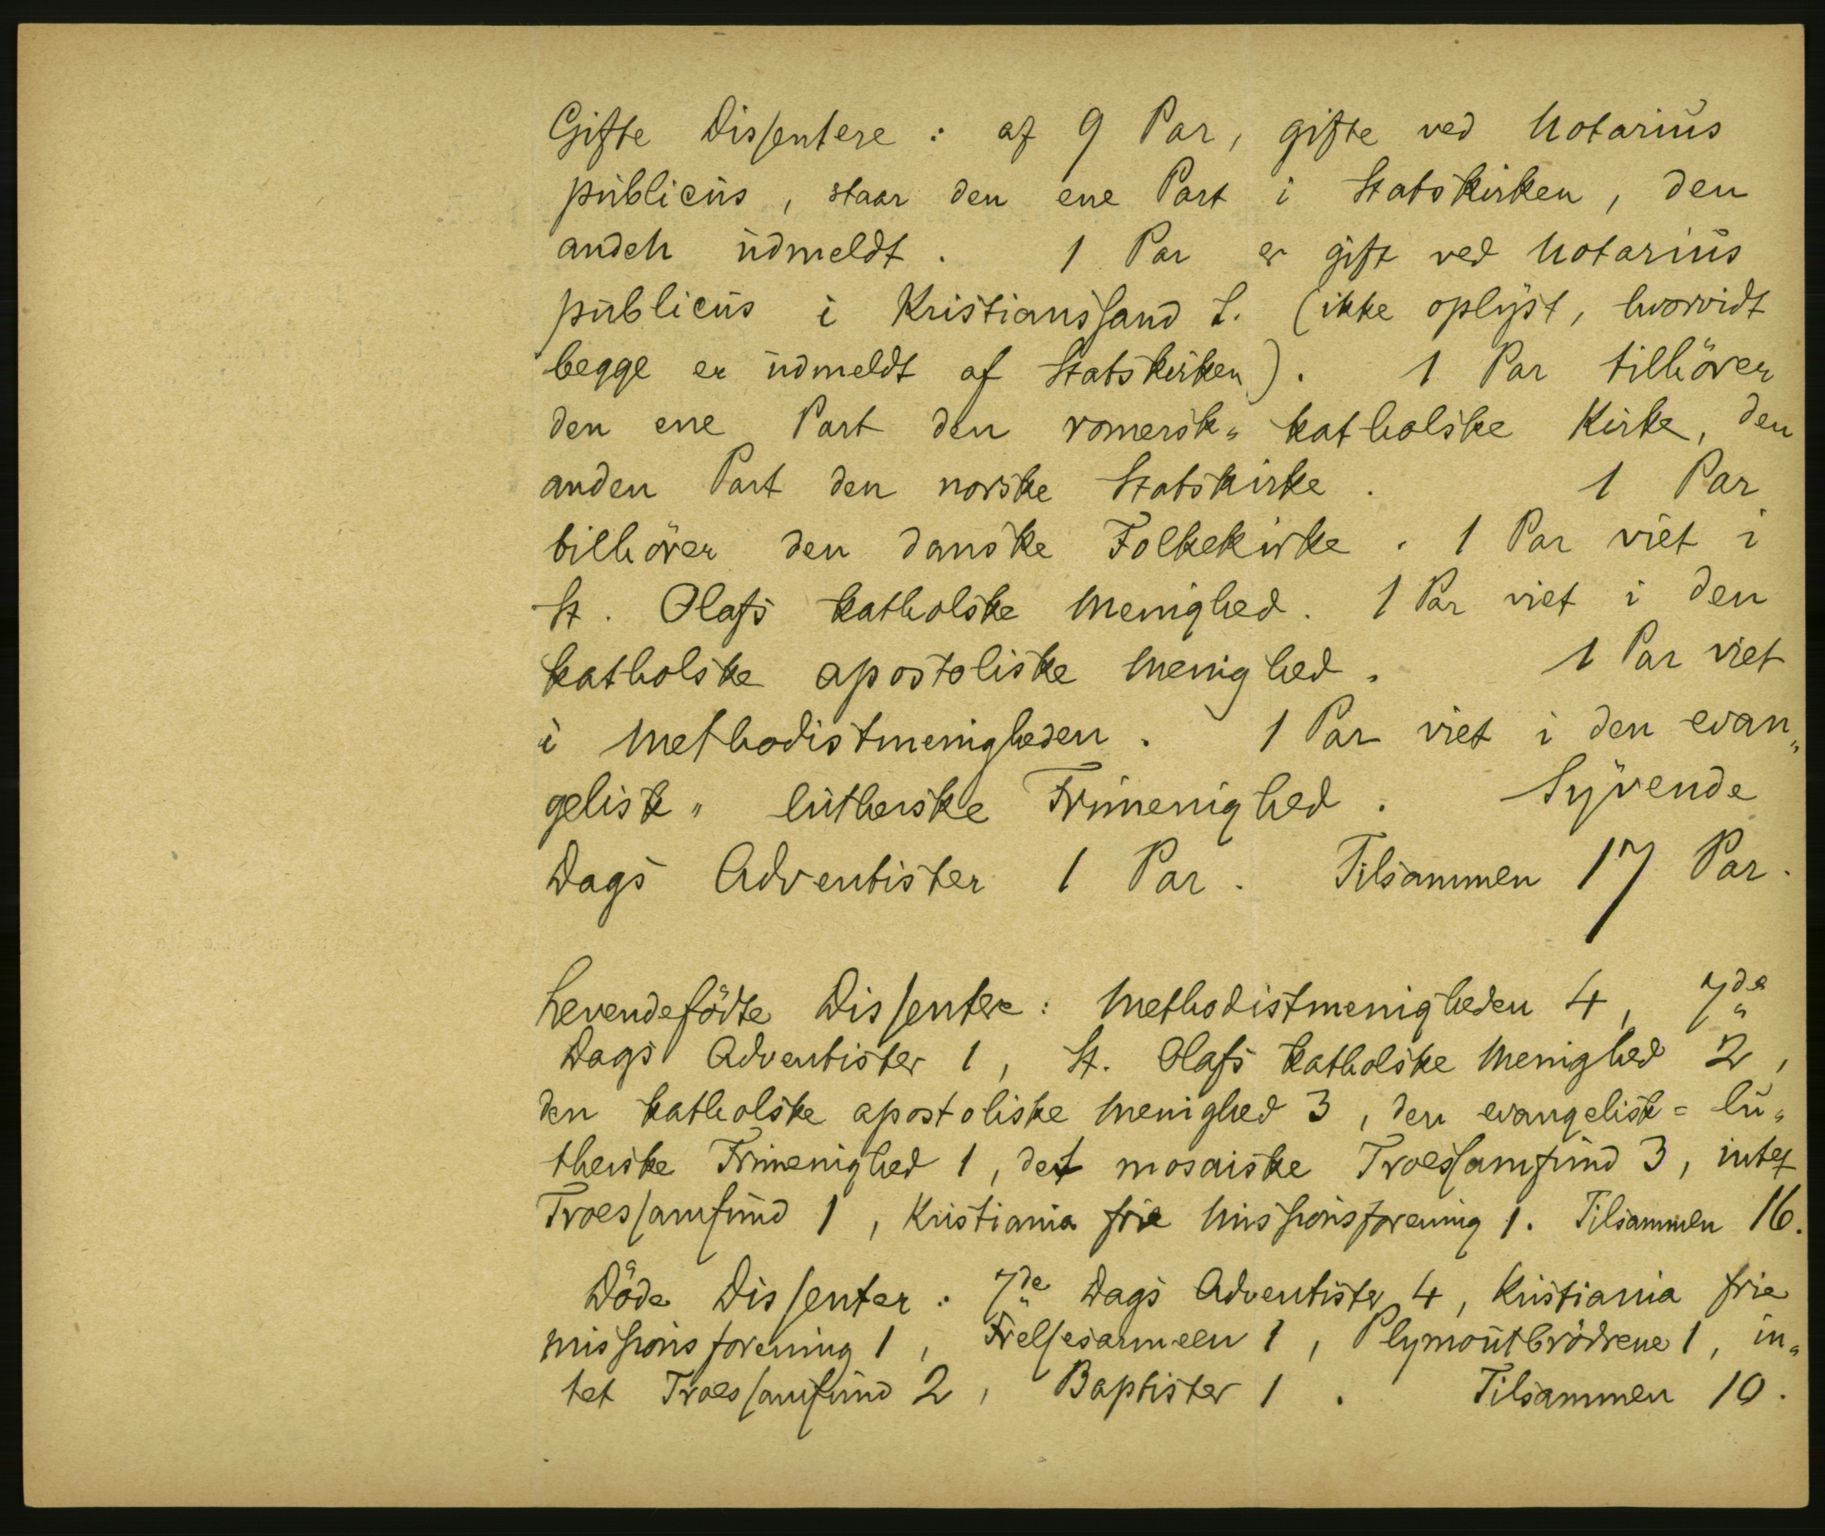 Gifte Dissentere : af 9 Par, gifte ved Notarius
publicus, staar den ene Part i Statskirken, den
anden udmeldt. 1 Par er gift ved Notarius
publicus i Kristianssand S. (ikke oplyst, hvorvidt
begge er udmeldt af Statskirken). 1 Par tilhörer
den ene Part den romersk„ katholske Kirke, den
anden Part den norske Statskirke. 1 Par
tilhörer den danske Folkekirke. 1 Par viet i
St. Olafs katholske Menighed. 1 Par viet i den
katholske apostoliske Menighed. 1 Par viet
i Methodistmenigheden. 1 Par viet i den evan„
gelisk„ lutherske Frimenighed. Syvende
Dags Adventister 1 Par. Tilsammen 17 Par.
Levendefödte Dissentere : Methodistmenigheden 4, 7de
Dags Adventister 1, St. Olafs katholske Menighed 2,
den katholske apostoliske Menighed 3, den evangelisk = lu„
therske Frimenighed 1, det mosaiske Troessamfund 3, intet
Troessamfund 1, Kristiania frie Missionsforening 1. Tilsammen 16.
Döde Dissenter : 7de Dags Adventister 4, Kristiania frie
Missionsforening 1, Frelsesarmeen 1, Plymoutbrödrene 1, in„
tet Troessamfund 2, Baptister 1. Tilsammen 10.